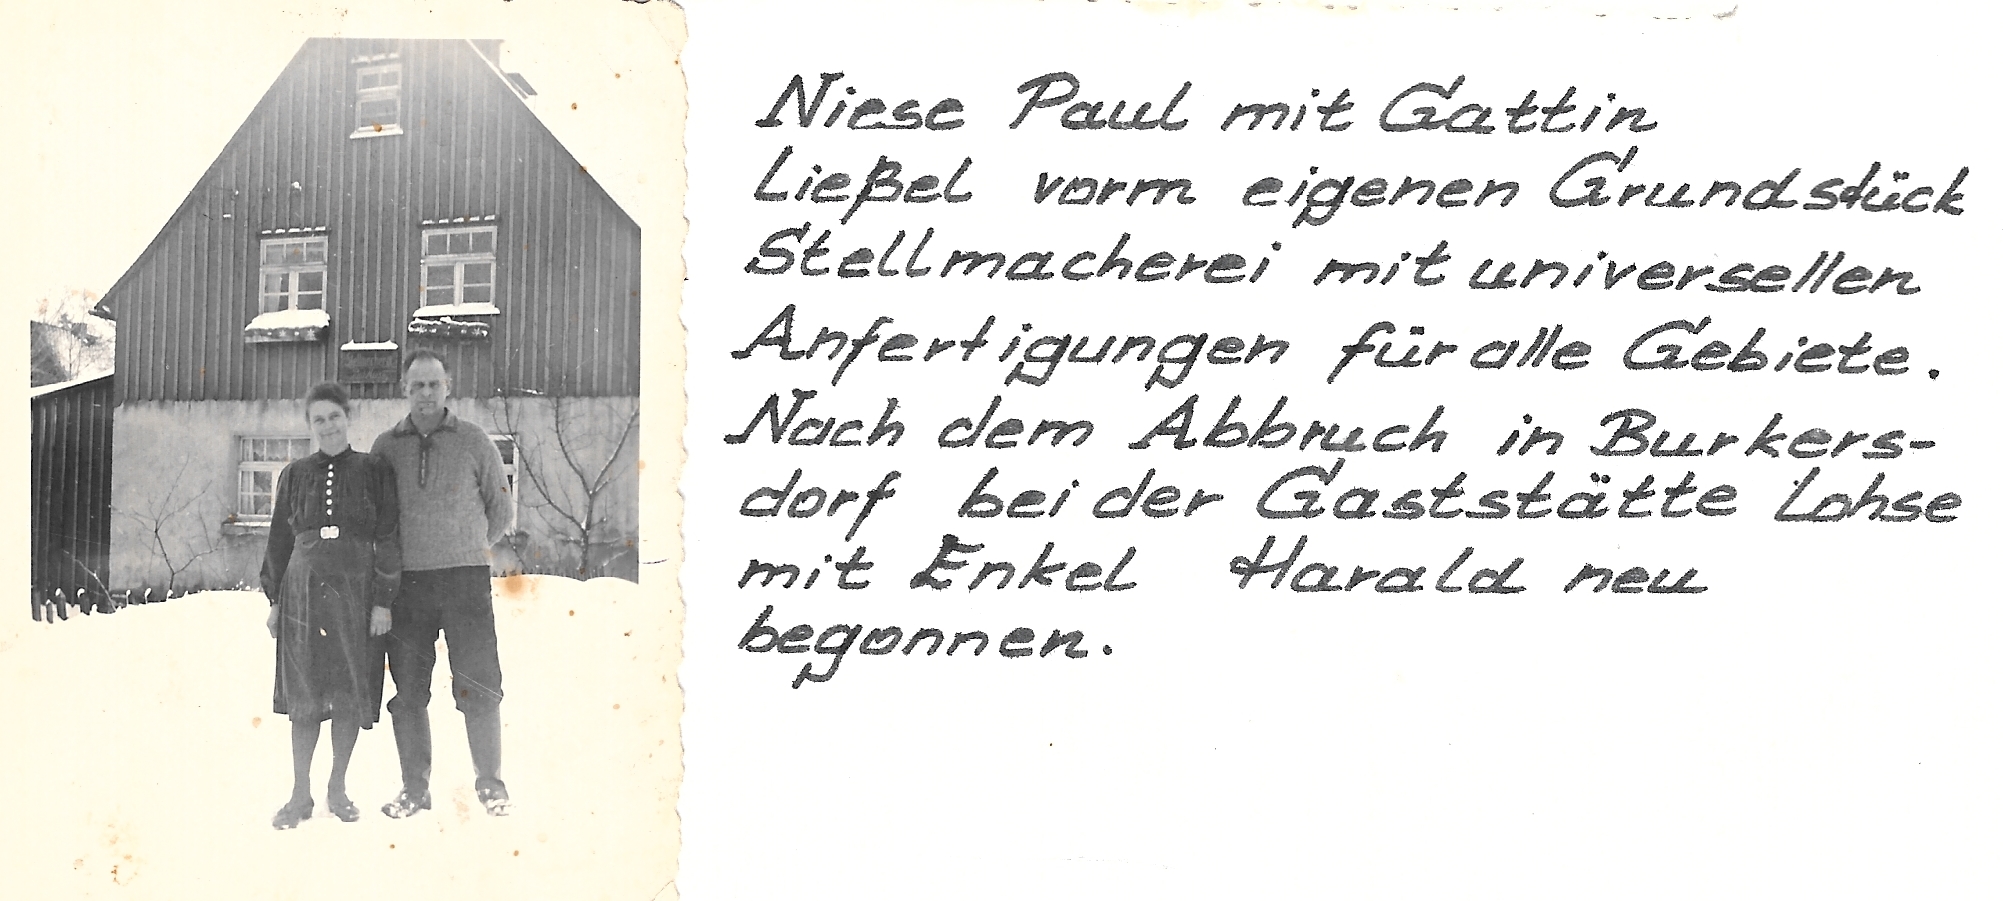 Niese Paul mit Gattin
Ließel vorm eigenen Grundstück
Stellmacherei mit universellen
Anfertigungen für alle Gebiete.
Nach dem Abbruch in Burkers-
dorf bei der Gaststätte Lohse
mit Enkel Harald neu
begonnen.